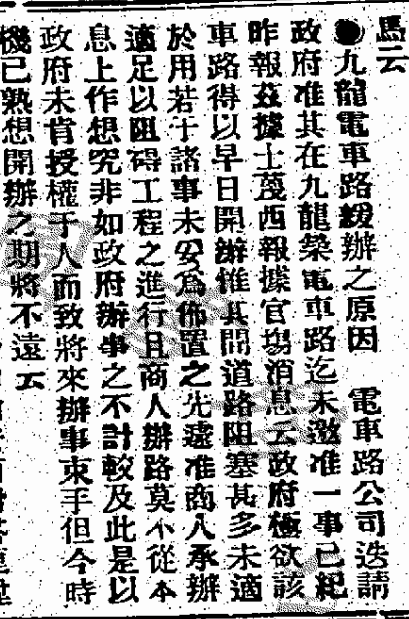 馬云
●九龍電車路緩辦之原因　電車路公司迭請
政府准其在九龍築電車路迄未邀准一事已紀
昨報茲據士蔑西報據官塲消息云政府極欲該
車路得以早日開辦惟其間道路阻塞甚多未適
於用若干諸事未妥為佈置之先遽准商人承辦
適足以阻碍工程之進行且商人辦路莫不從本
息上作想究非如政府辦事之不計較及此是以
政府未肯授權于人而致將來辦事束手但今時
機已熟想開辦之期將不遠云